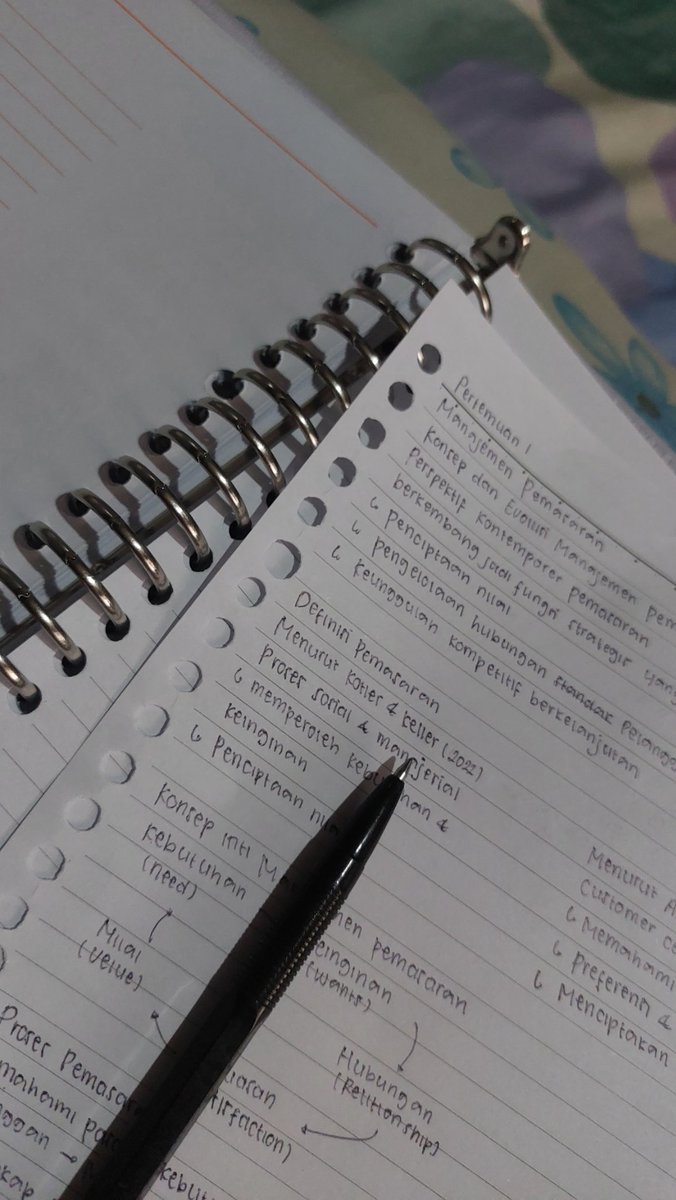 Pertemuan 1
Manajemen Pemasaran
Konsep dan Evolusi Manajemen Pem
Perspektif kontemporer pemasaran
berkembang jadi fungsi strategis yang
↳ Penciptaan nilai
↳ Pengelolaan hubungan standar pelangg
↳ Keunggulan kompetitif berkelanjutan
Definisi Pemasaran
Menurut Kotler & Keller (2022)
Proses sosial & manajerial
↳ memperoleh keb han &
keinginan
↳ Penciptaan nila
Menurut A
Customer ce
↳ Memahami
↳ Preferensi &
↳ Menciptakan
Konsep inti Ma men pemasaran
Kebutuhan
(need)
einginan
(wants)
Nilai
(value)
Hubungan
(Relitionship)
uaran
tirfaction)
Proses Pemasara
mahami pa kebutu
nggan →
kap